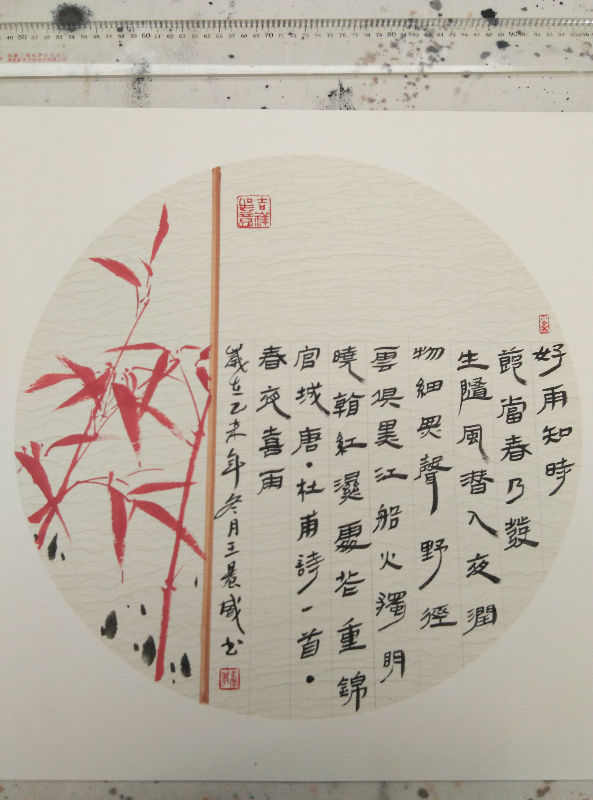 好雨知時
節當春乃發
生隨風潛入夜潤
物細無聲野徑
雲俱黑江船火獨明
曉看紅濕處花重錦
官城唐·杜甫詩一首·
春夜喜雨
歲在乙未年冬月王晨威書
吉祥如意